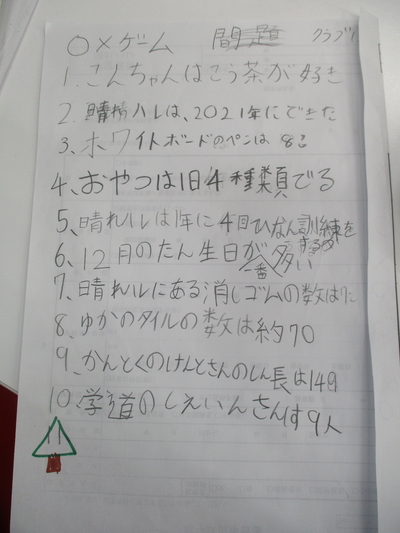 ○×ゲーム 問題 クラブ
1.こんちゃんはこう茶が好き
2.晴れハレは、2021年にできた
3、ホワイトボードのペンは8こ
4、おやつは1日4種類でる
5、晴れハレは1年に4回ひなん訓練をする
6、12月のたん生日が一番多い
7、晴れハレにある消しゴムの数は
8、ゆかのタイルの数は約70
9、かんとくのけんとさんのしん長は149
10、学道のしえいんさんは9人